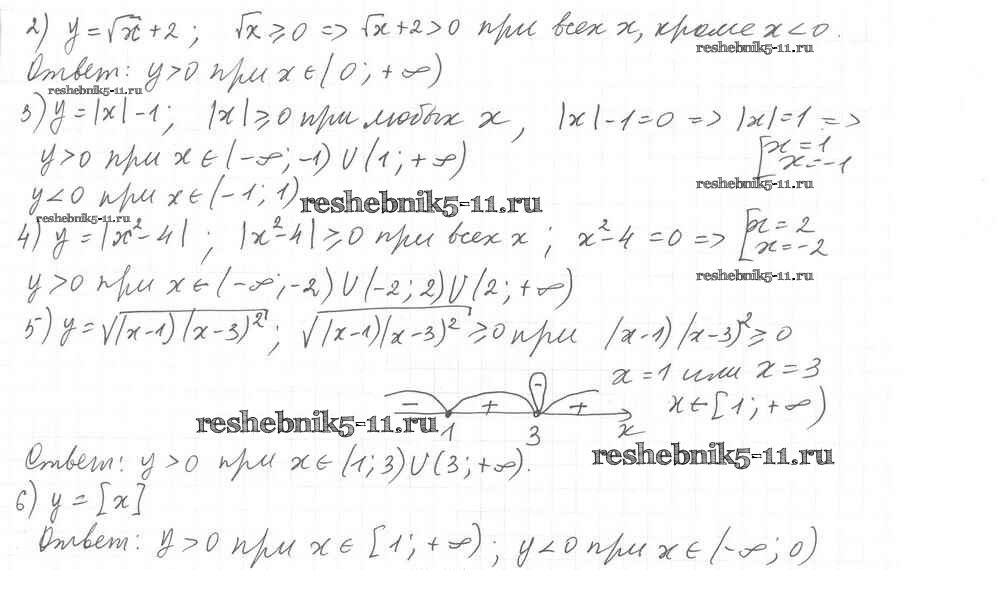 2) y = √x + 2 ; √x ≥ 0 => √x + 2 > 0 при всех x, кроме x < 0.
reshebnik5-11.ru
Ответ: y > 0 при x ∈ (0 ; + ∞)
reshebnik5-11.ru
3) y = |x| - 1 ; |x| ≥ 0 при любых x , |x| - 1 = 0 => |x| = 1 =>
[ x = 1
x = -1
y > 0 при x ∈ (-∞ ; -1) ∪ (1 ; + ∞)
reshebnik5-11.ru
y < 0 при x ∈ (-1 ; 1)
reshebnik5-11.ru
reshebnik5-11.ru
4) y = |x² - 4| ; |x² - 4| ≥ 0 при всех x ; x² - 4 = 0 => [ x = 2
x = -2
reshebnik5-11.ru
y > 0 при x ∈ (-∞ ; -2) ∪ (-2 ; 2) ∪ (2 ; + ∞)
5) y = √(x-1)(x-3)² ; √(x-1)(x-3)² ≥ 0 при (x-1)(x-3)² ≥ 0
x = 1 или x = 3
- + - +
x ∈ [1 ; + ∞)
reshebnik5-11.ru
1 3 x
reshebnik5-11.ru
Ответ: y > 0 при x ∈ (1 ; 3) ∪ (3 ; + ∞).
6) y = [x]
Ответ: y > 0 при x ∈ [1 ; + ∞) ; y < 0 при x ∈ (-∞ ; 0)